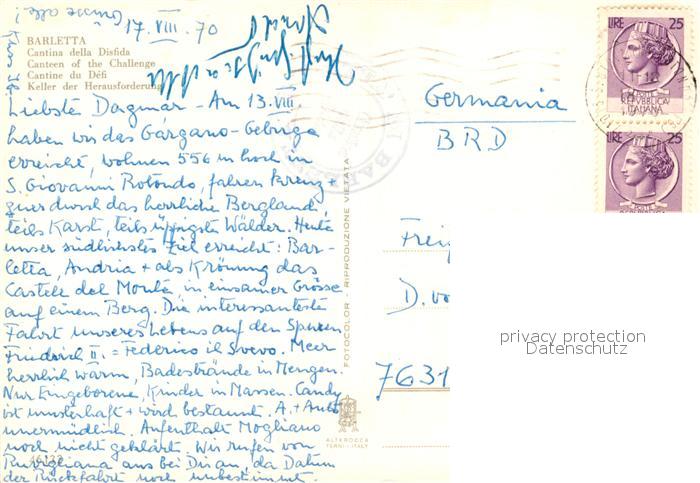 17. VIII. 70
BARLETTA
Cantina della Disfida
Canteen of the Challenge
Cantine du Défi
Keller der Herausforderung
Liebste Dagmar - Am 13. VIII.
haben wir das Gárgano-Gebirge
erreicht, wohnen 556 m hoch in
S. Giovanni Rotondo, fahren kreuz +
quer durch das herrliche Bergland,
teils Karst, teils üppigste Wälder. Heute
unser südlichstes Ziel erreicht: Bar-
letta, Andria + als Krönung das
Castele del Monte, in einsamer Grösse
auf einem Berg. Die interessanteste
Fahrt unseres Lebens auf den Spuren
Friedrich II. = Federico il Svevo. Meer
herrlich warm, Badestrände in Mengen.
Nur Eingeborene, Kinder in Massen. Candy
ist musterhaft + wird bestaunt. A. + Auto
unermüdlich. Aufenthalt Mogliano
noch nicht geklärt. Wir rufen von
Ruvigliana aus bei Dir an, da Datum
der Rückfahrt noch unbestimmt.
46127
FOTOCOLOR - RIPRODUZIONE VIETATA
ALTEROCCA
TERNI - ITALY
LIRE 25
POSTE
REPVBBLICA
ITALIANA
LIRE 25
POSTE
Germania
BRD
D. vo
7631
privacy protection
Datenschutz